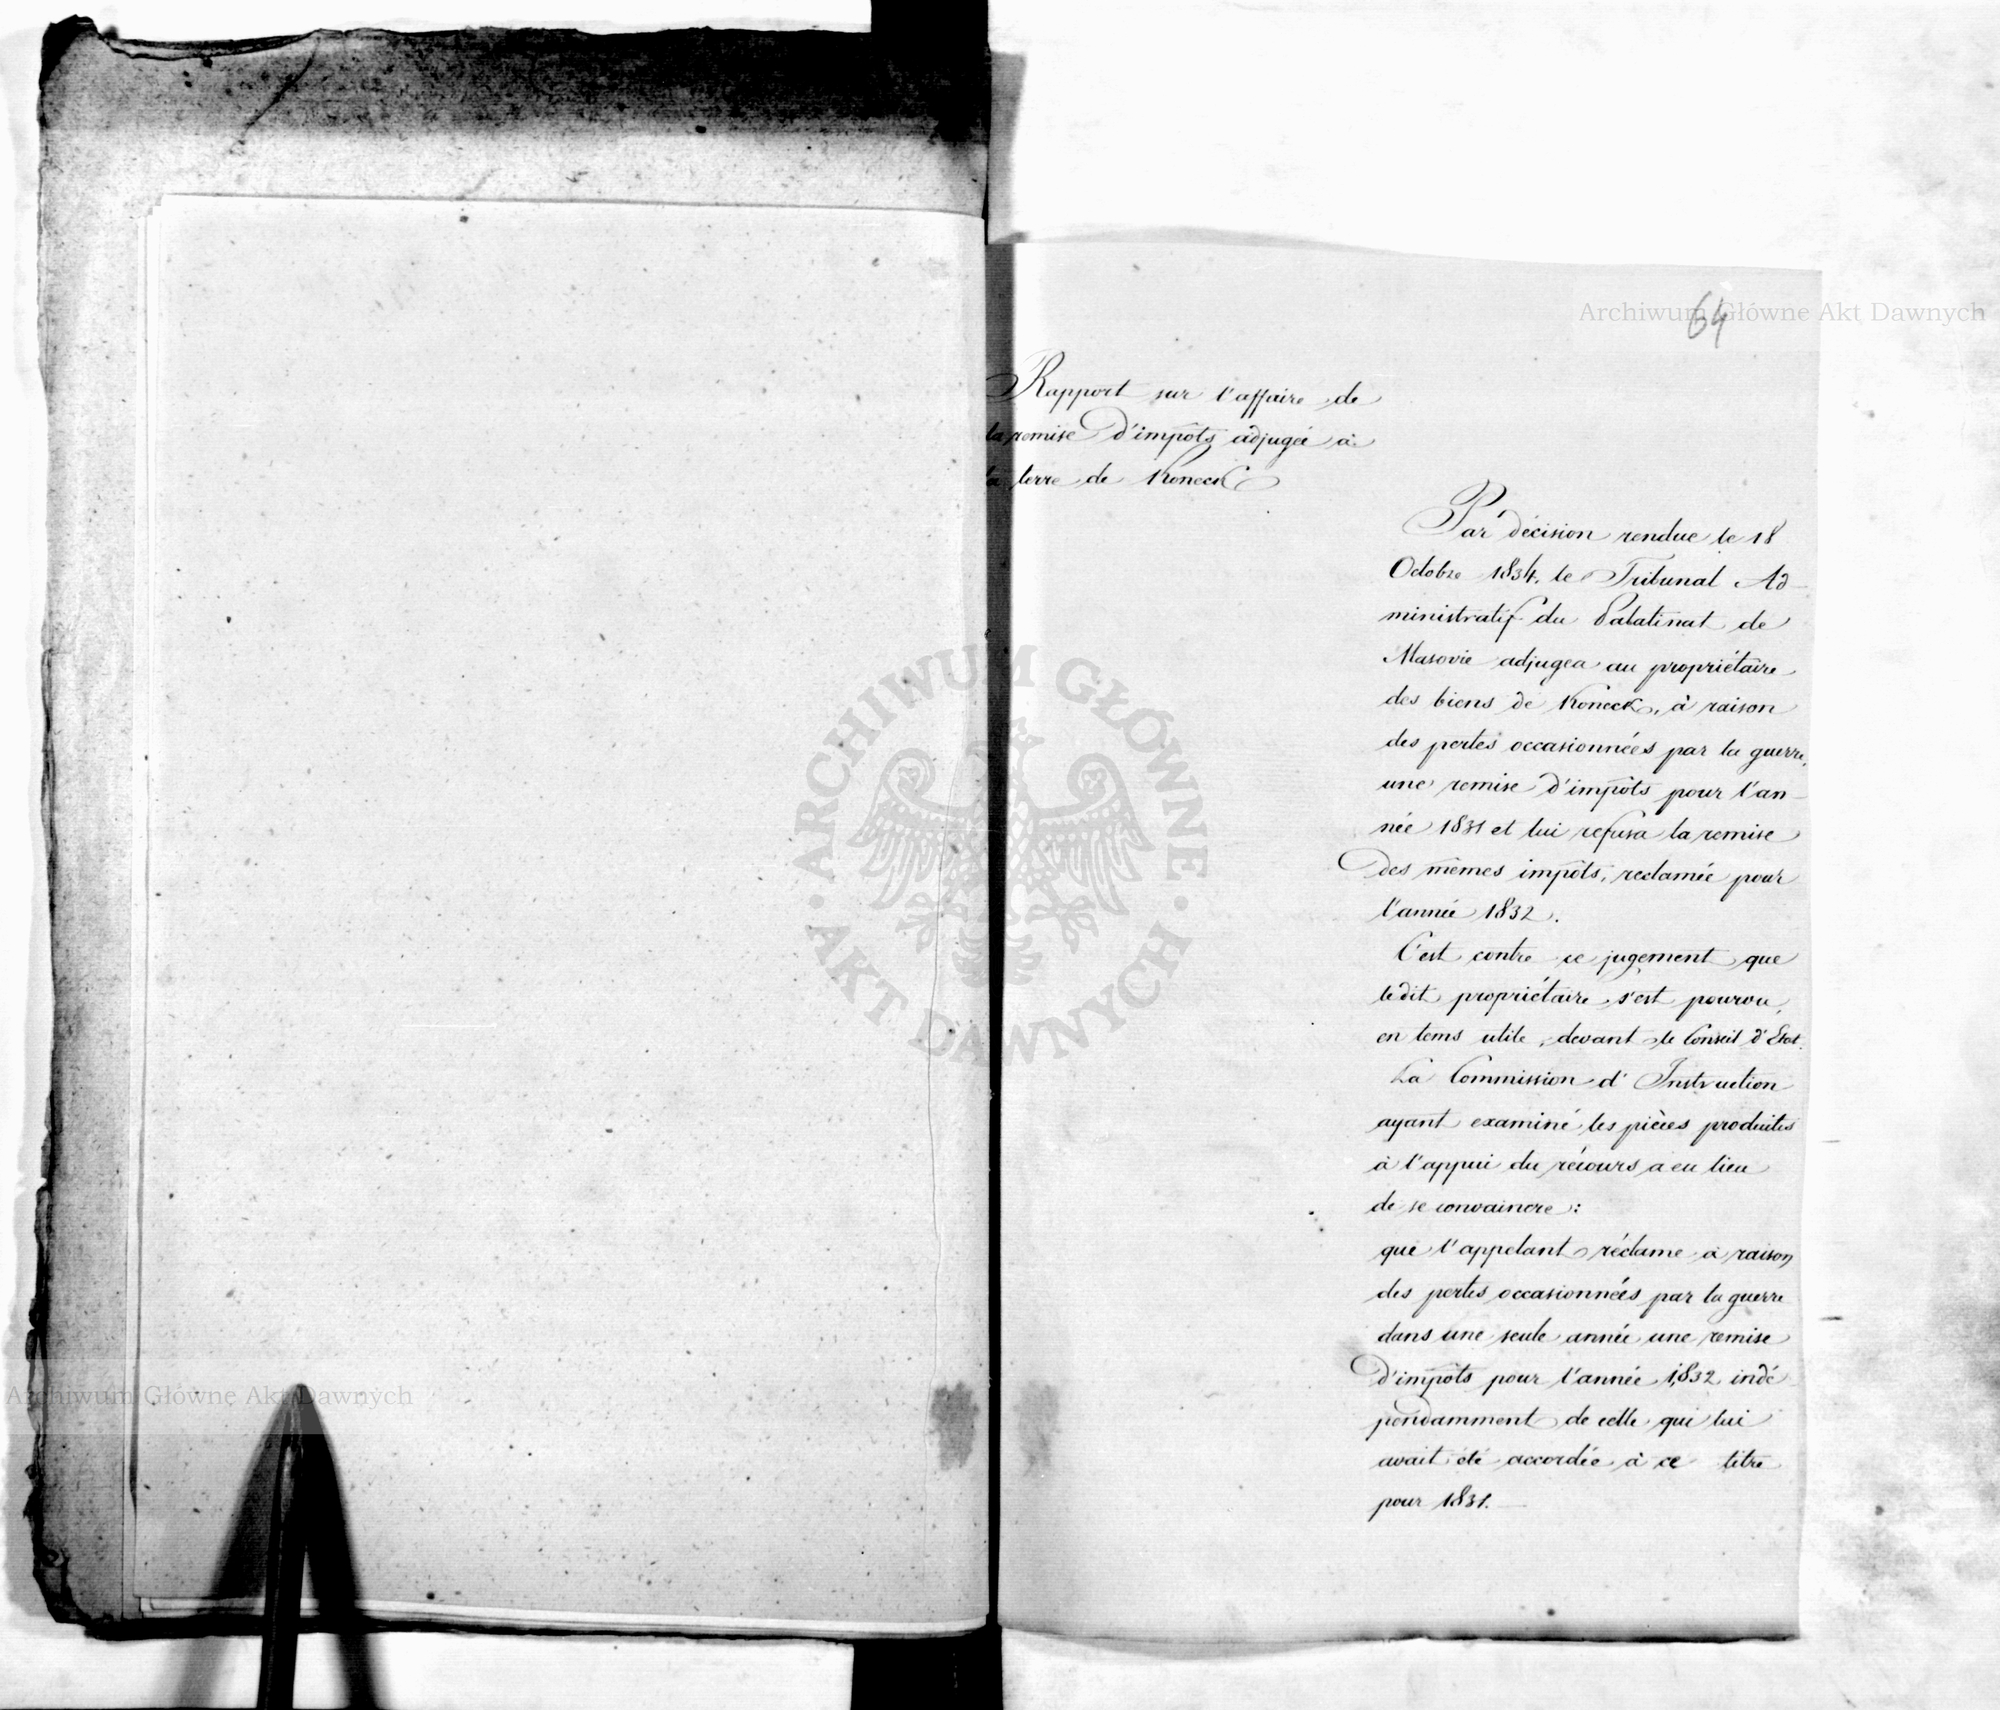 64
Rapport sur l'affaire de
la remise d'impôts adjugée à
la terre de Koneck
Par décision rendue le 18
Octobre 1834. le Tribunal Ad-
ministratif du Palatinat de
Masovie adjugea au propriétaire
des biens de Koneck, à raison
des pertes occasionnées par la guerre,
une remise d'impôts pour l'an-
née 1831 et lui refusa la remise
des mêmes impôts, reclamée pour
l'année 1832.
C'est contre ce jugement que
ledit propriétaire s'est pourvu,
en tems utile, devant le Conseil d'Etat.
La Commission d'Instruction
ayant examiné les pièces produites
à l'appui du récours a eu lieu
de se convaincre:
que l'appelant réclame à raison
des pertes occasionnées par la guerre
dans une seule année une remise
d'impôts pour l'année 1832 indé-
pendamment de celle qui lui
avait été accordée à ce titre
pour 1831.
Archiwum Główne Akt Dawnych
ARCHIWUM GŁÓWNE
AKT DAWNYCH
Archiwum Główne Akt Dawnych